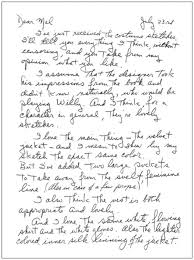 Dear Mel July 23rd
I've just received the costume sketches.
I'll tell you everything I think, without
censoring, and you take from my
opinion what you like.
I assume that the designer took
his impressions from the book and
didn't know, naturally, who would be
playing Willy. And I think, for a
character in general, They're lovely
sketches.
I love the main thing - The velvet
jacket - and I mean to show by my
sketch the exact same color.
But I've added two large pockets
To take away from the svelt, feminine
line. (Also in case of a few props)
I also think The vest is both
appropriate and lovely.
And I love The same white, flowing
shirt and the white gloves. Also the lighter
colored inner silk lining of the jacket.